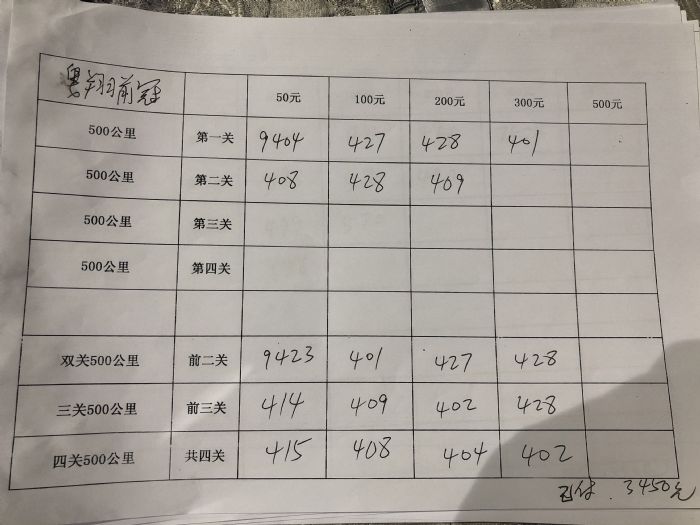 粤翔前冠 50元 100元 200元 300元 500元
500公里 第一关 9404 427 428 401
500公里 第二关 408 428 409
500公里 第三关
500公里 第四关
双关500公里 前二关 9423 401 427 428
三关500公里 前三关 414 409 402 428
四关500公里 共四关 415 408 404 402
已付.3450元